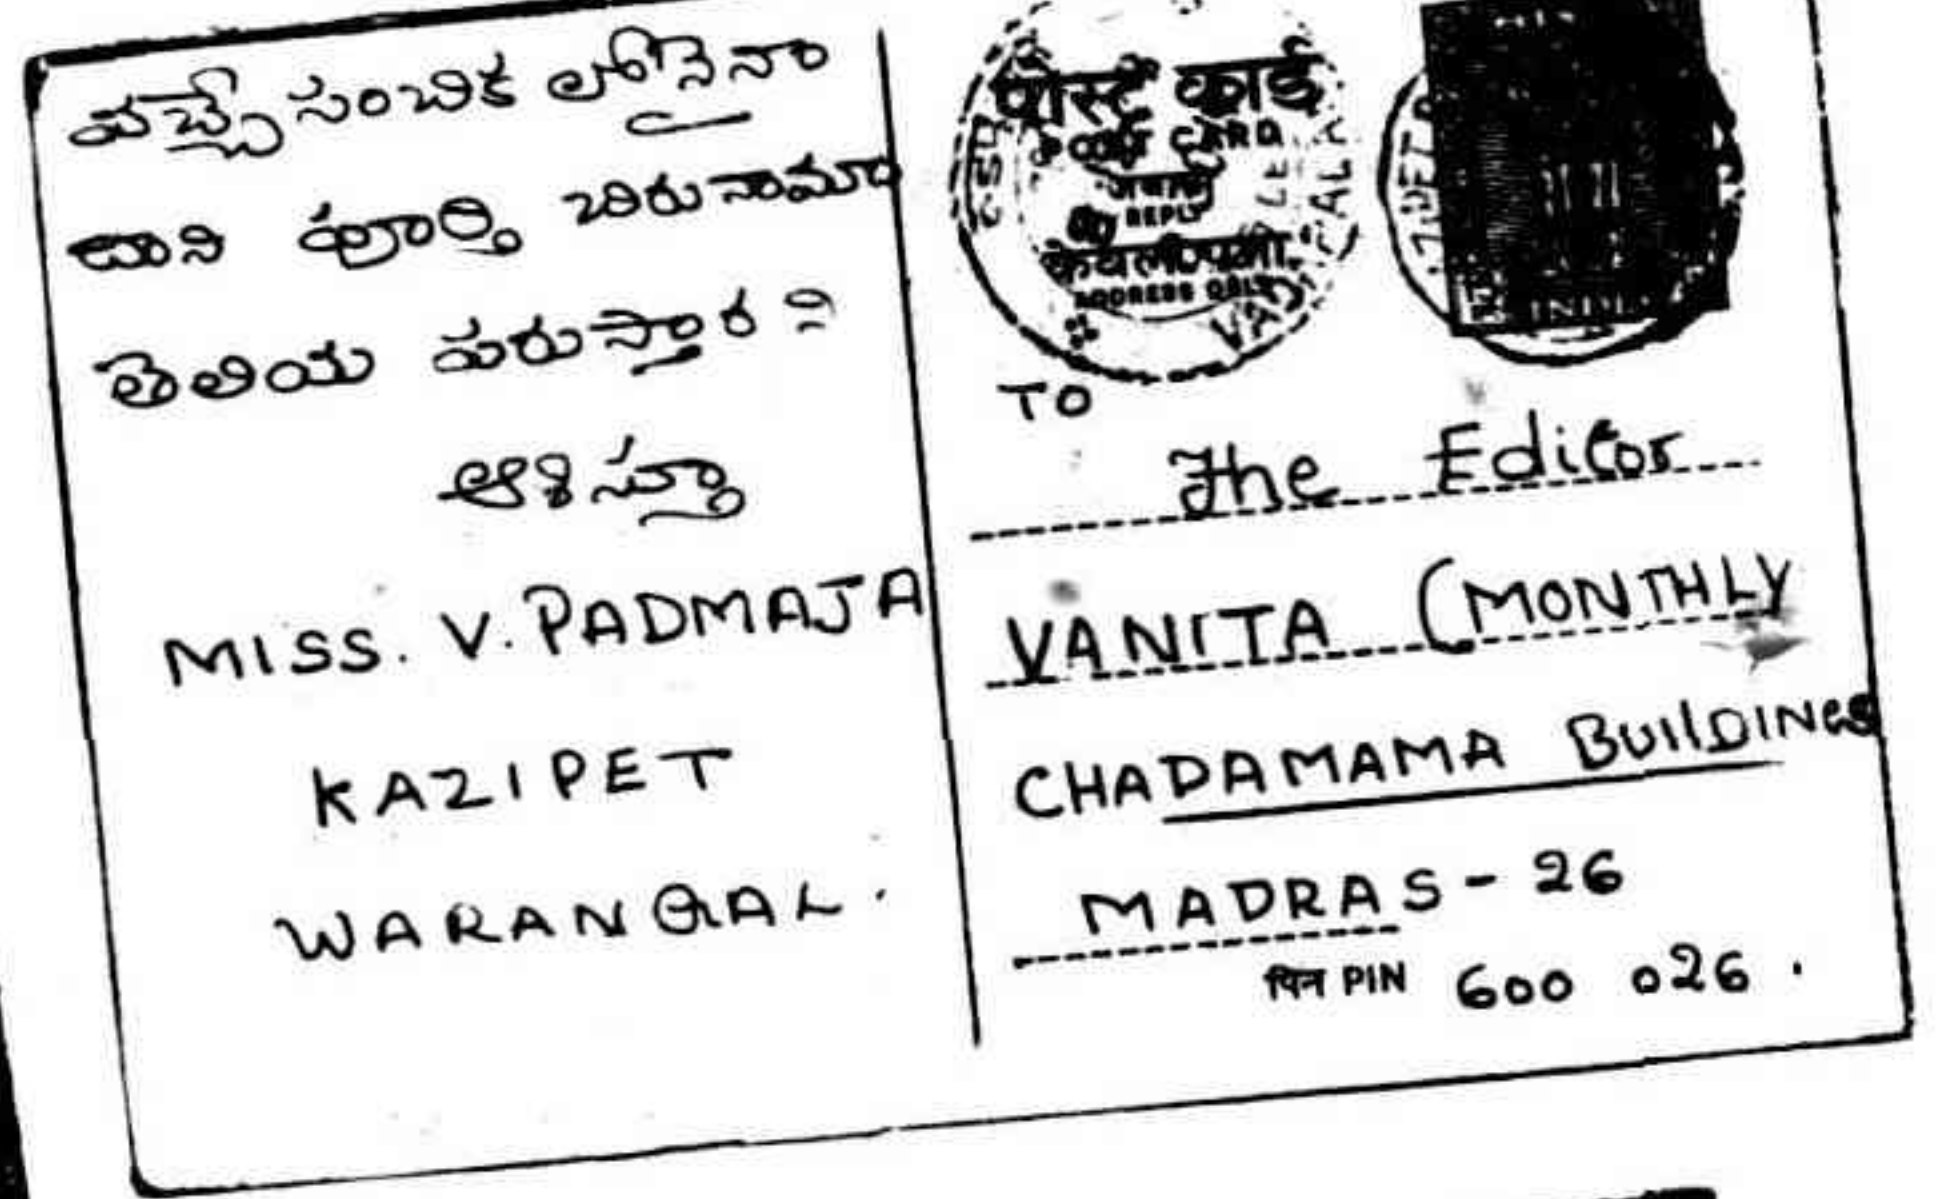 వచ్చే సంచిక లోనైనా
దాని పూర్తి చిరునామా
తెలియ పరుస్తారని
ఆశిస్తూ
MISS. V. PADMAJA
KAZIPET
WARANGAL.
पोस्ट कार्ड
POST CARD
जवाबी
REPLY
ADDRESS ONLY
INDIA
TO
The Editor
VANITA (MONTHLY
CHADAMAMA BUILDINGS
MADRAS - 26
पिन PIN 600 026.